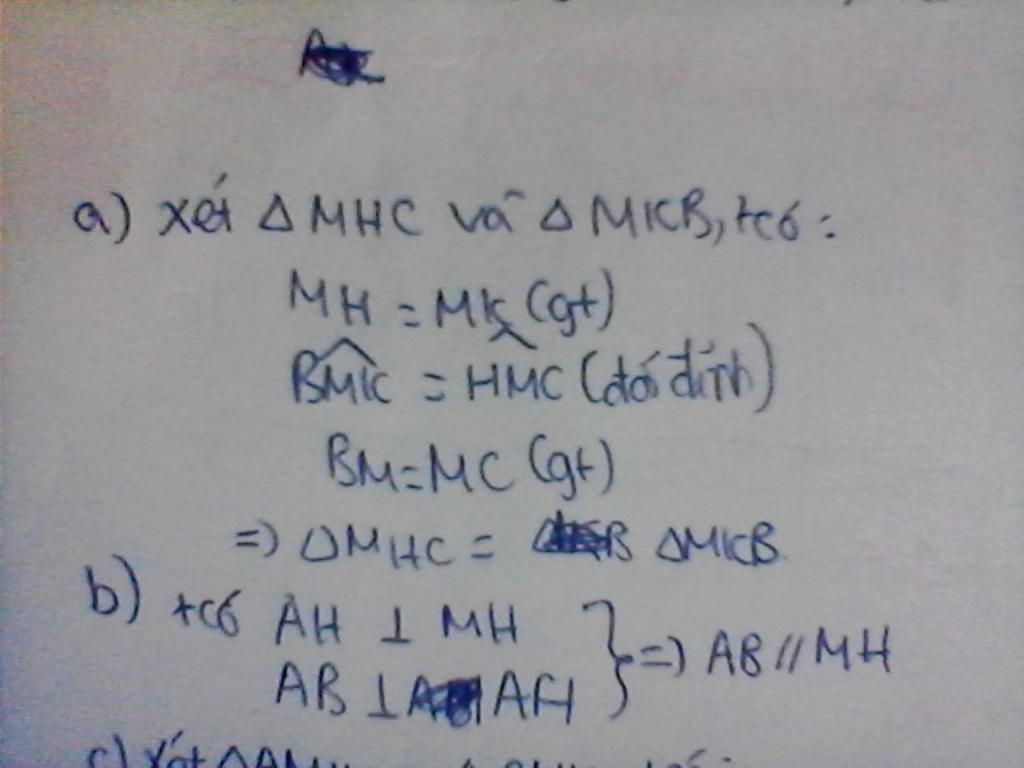 a) Xét Δ MHC và Δ MKB, tcó :
MH = MK (gt)
BMK = HMC (đối đỉnh)
BM = MC (gt)
=> ΔMHC = ΔMKB
b) tcó AH ⊥ MH
AB ⊥ AH } => AB // MH
c) Xét